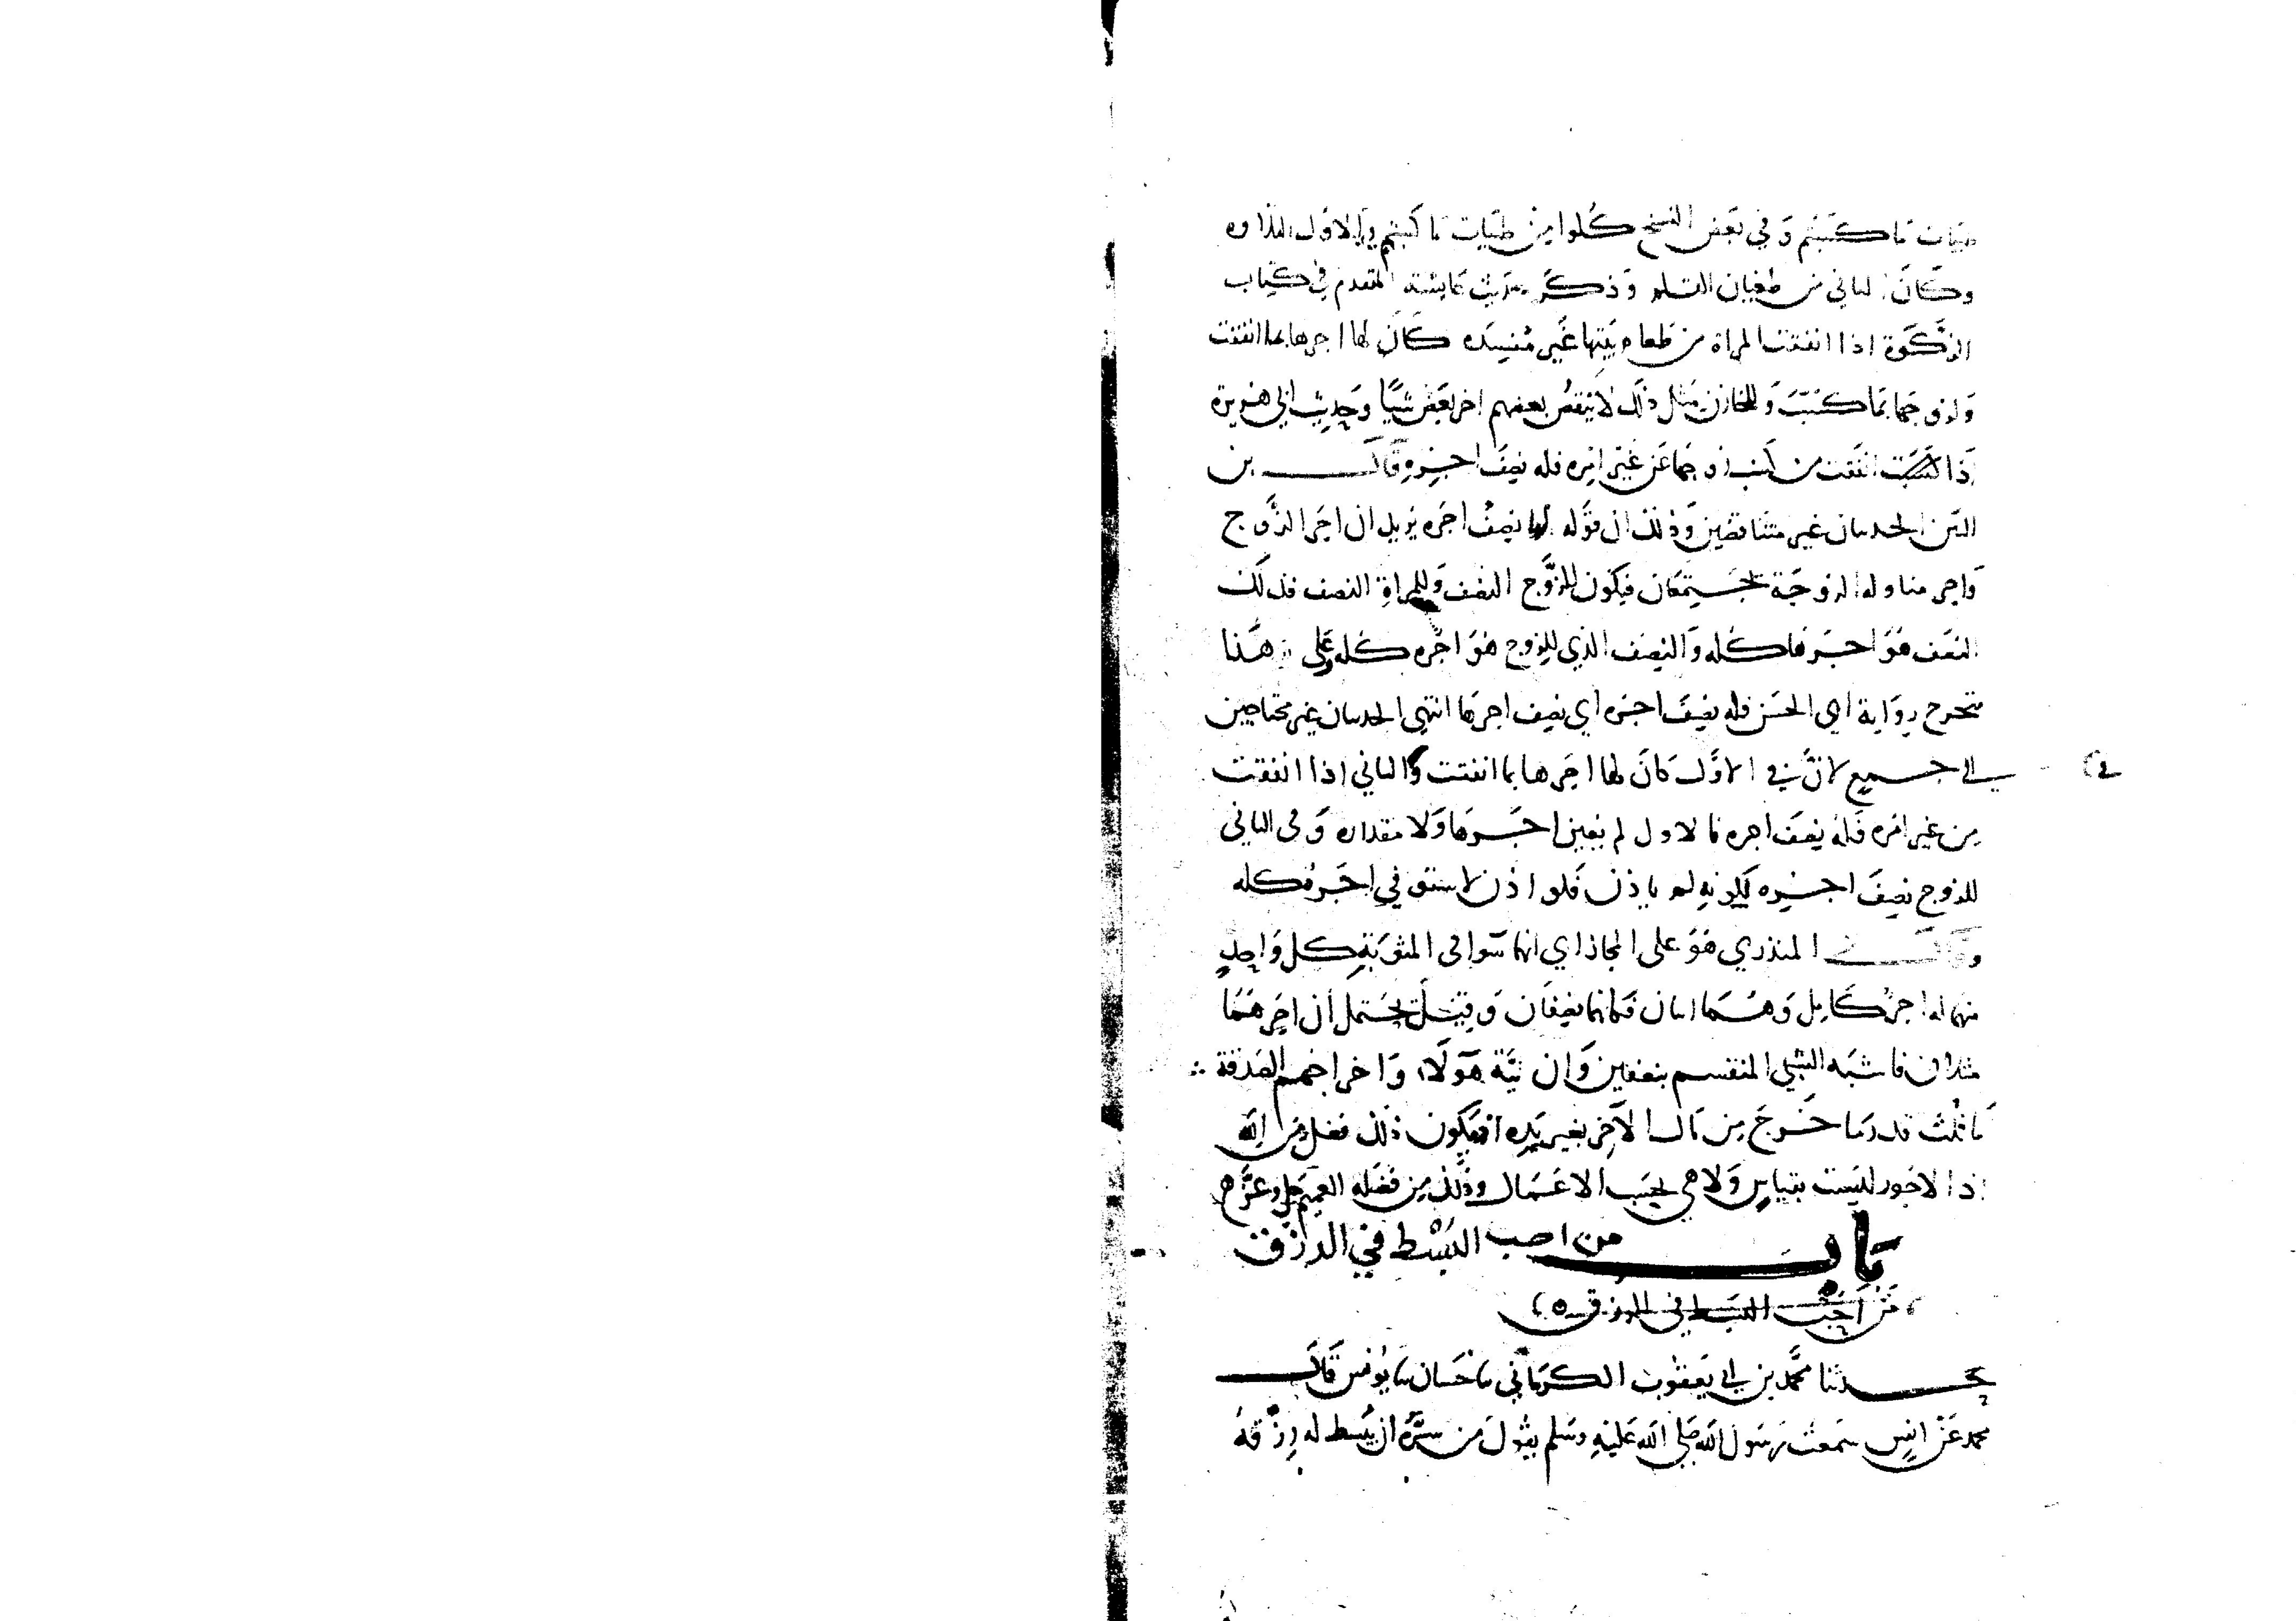 طيبات ما كسبتم وفي بعض النسخ كلوا من طيبات ما كسبتم والاول التلاوه
وكان الثاني من طغيان القلم وذكر حديث عايشة المتقدم في كتاب
الزكوة اذا انفقت المراة من طعام بيتها غير مفسده كان لها اجرها بما انفقت
ولزوجها بما كسب وللخازن مثل ذلك لا ينقص بعضهم اجر بعض شيا وحديث ابي هريرة
اذا انفقت من كسب زوجها عن غير امره فله نصف اجره وقال بن
التين الحديثان غير متناقضين وذلك ان قوله لها نصف اجره يريد ان اجر الزوج
واجر مناولة الزوجة يجتمعان فيكون للزوج النصف وللمراة النصف فذلك
النصف هو اجرها كله والنصف الذي للزوج هو اجره كله وعلى هذا
تتخرج رواية ابي الحسن فله نصف اجره اي نصف اجرها انتهى الحديثان غير محتاجين
الى جميع لان في الاول كان لها اجرها بما انفقت والثاني اذا انفقت
في
من غير امره فله نصف اجره فالاول لم يعين اجرها ولا مقداره وفي الثاني
للزوج نصف اجره لكونه لم ياذن فلو اذن لاستوفي اجره كله
وقال المنذري هو على المجاز اي انهما سوا في المثوبة كل واحد
منهما له اجر كامل وهما اثنان فكانهما نصفان وقيل يحتمل ان اجرهما
مثلان فاشبه الشي المنقسم بنصفين وان نية هولاء واخراجهم الصدقة
ماثلت قدر ما خرج من مال الاخر بغير يده او يكون ذلك فضل من الله
اذا الاجور ليست بقياس ولا هي بحسب الاعمال وذلك من فضله العميم جل وعز ه
باب من احب البسط في الرزق
من احب البسط في الرزق ه
حدثنا محمد بن ابي يعقوب الكرماني ثنا حسان ثنا يونس قال
محمد عن انس سمعت رسول الله صلى الله عليه وسلم يقول من سره ان يبسط له رزقه